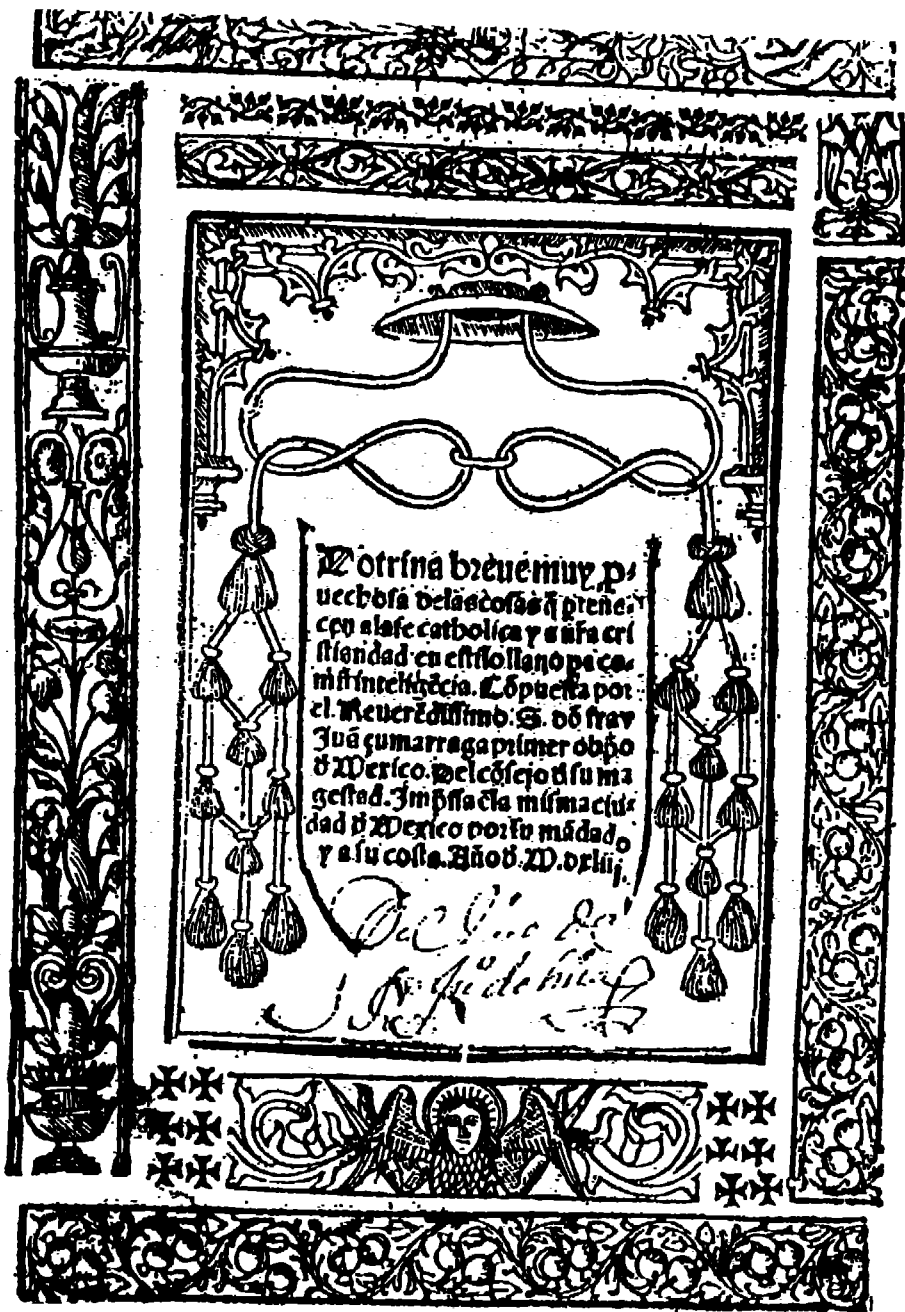 Dotrina breue muy ꝓ-
uechosa delas cosas q̃ ꝑtene-
cen ala fe catholica y a nr̃a cri
stiandad en estilo llano ꝑa co-
mũ inteligẽcia. Cõpuesta por
el. Reuerẽdissimo. S. dõ fray
Juã çumarraga primer obp̃o
d̃ Mexico. Del cõsejo d̃ su ma
gestad. Impr̃ssa ẽla misma ciu-
dad d̃ Mexico por su mãdado
y a su costa. Año d̃. M. dxliij